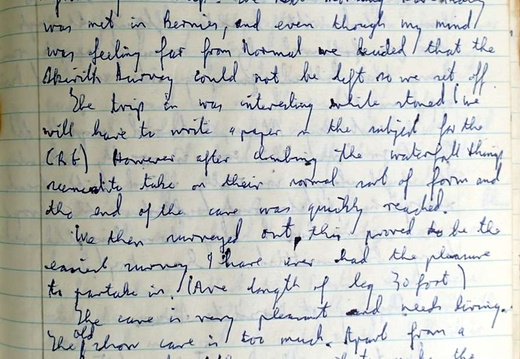 was met in Bernies, and even though my mind
was feeling far from Normal we decided that the
Skirith Survey could not be left so we set off.
The trip in was interesting while stoned (we
will have to write a paper on the subject for the
CRG) However after climbing the waterfall things
seemed to take on their normal sort of form and
the end of the cave was quickly reached.
We then surveyed out, this proved to be the
easiest survey I have ever had the pleasure
to partake in. (Ave length of leg 30 foot)
The cave is very pleasant and needs diving.
The old show cave is too much. Apart from a